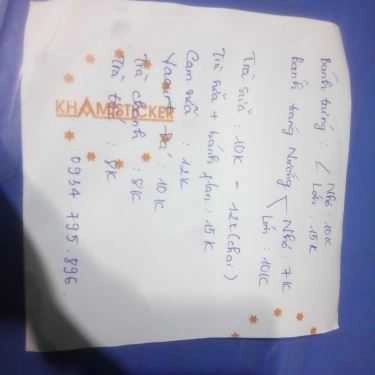 Bánh tráng : Nhỏ 10K
Lớn : 15K
Bánh tráng Nướng Nhỏ 7K
Lớn : 10K
Trà sữa : 10K - 12K (chai)
Trà sữa + bánh flan : 15K
Cam sữa : 12K
Yaourt đá : 10K
Trà chanh : 8K
Trà : 8K
0934 795 896